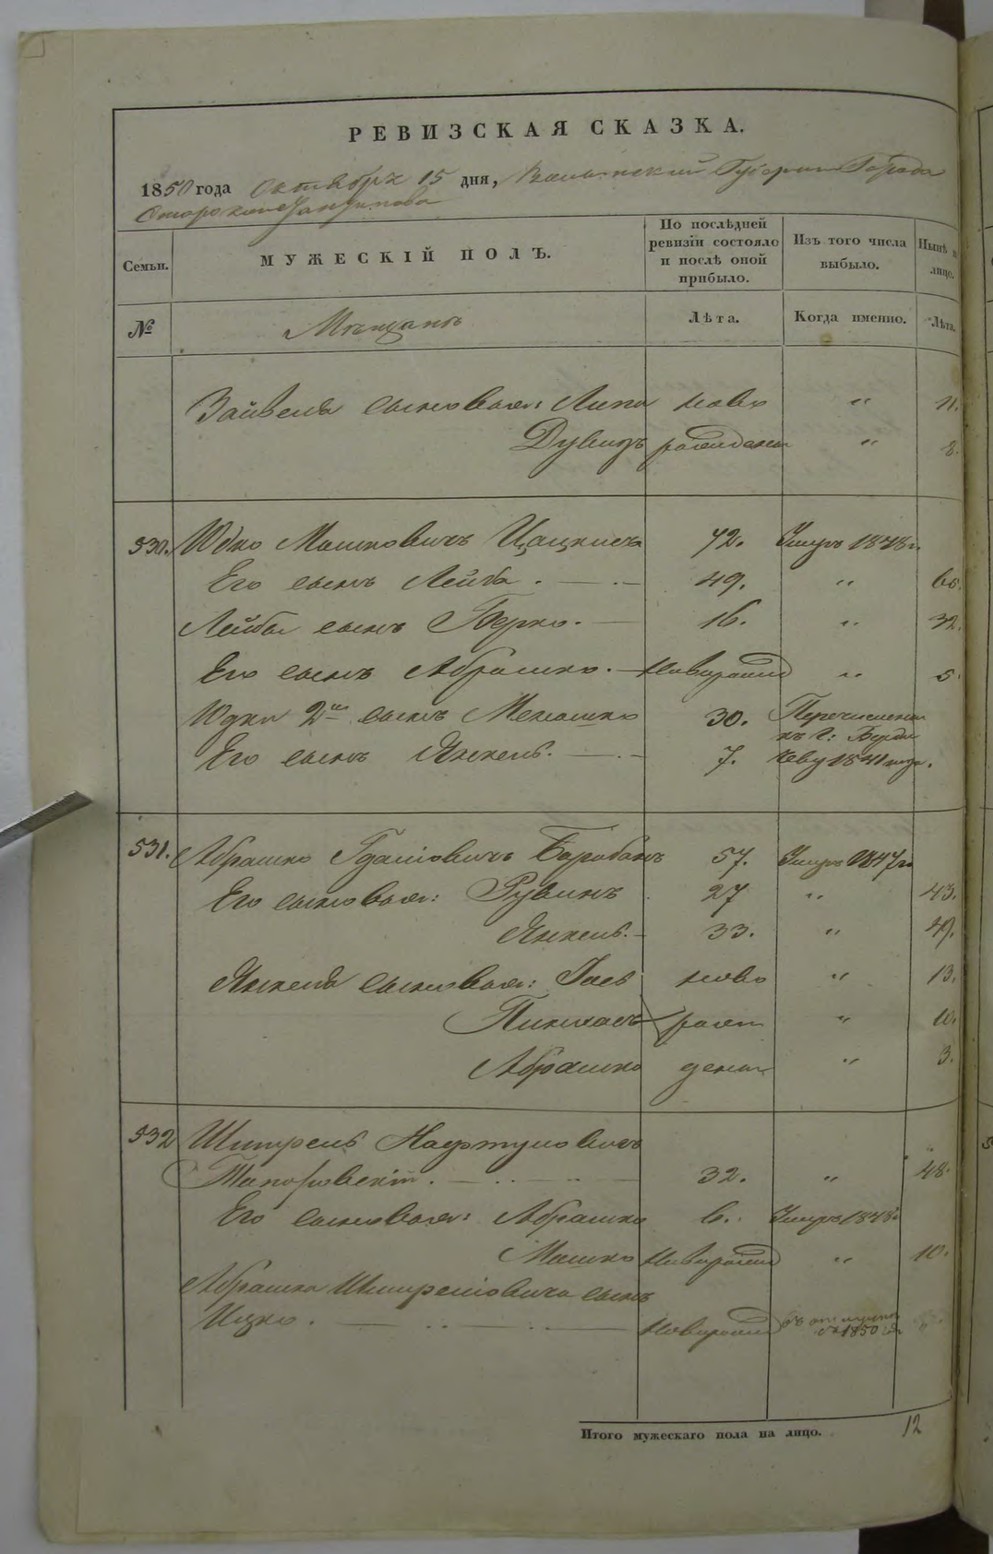 РЕВИЗСКАЯ СКАЗКА.
1850 года Октября 15 дня, Волынской Губернии Города
Староконстантинова
Семьи. МУЖЕСКІЙ ПОЛЪ. По послѣдней ревизіи состояло и послѣ оной прибыло. Изъ того числа выбыло. Нынѣ на лицо.
№ Мѣщанъ Лѣта. Когда именно. Лѣта.
Зайвеля сыновья: Липа ново " 11.
Дувидъ рожденн " 8.
530. Юдко Мошковичъ Цацкисъ 72. Умеръ 1848 г.
Его сынъ Лейба. 49. " 65.
Лейбы сынъ Берко. 16. " 32.
Его сынъ Абрашко. Новорожд " 5.
Юдки 2й сынъ Меношко 30. Перечисленъ
къ г: Берди
Его сынъ Янкель. 7. чеву 1841 года.
531. Абрашко Барабанъ 57. Умеръ 1847 г.
Его сыновья: Рувинъ 27 " 43.
Янкель. 33. " 49.
Янкеля сыновья: Іось ново " 13.
Пинхасъ рож " 10.
Абрашко денн " 3.
532 Шмерель Нафтуловичъ
Топоровскій. 32. " 48.
Его сыновья: Абрашко 6. Умеръ 1848
Мошко Новорожд " 10.
Абрашка Шмерелiовича сынъ
Ицко. Новорожд 1850 "
Итого мужескаго пола на лицо. 12